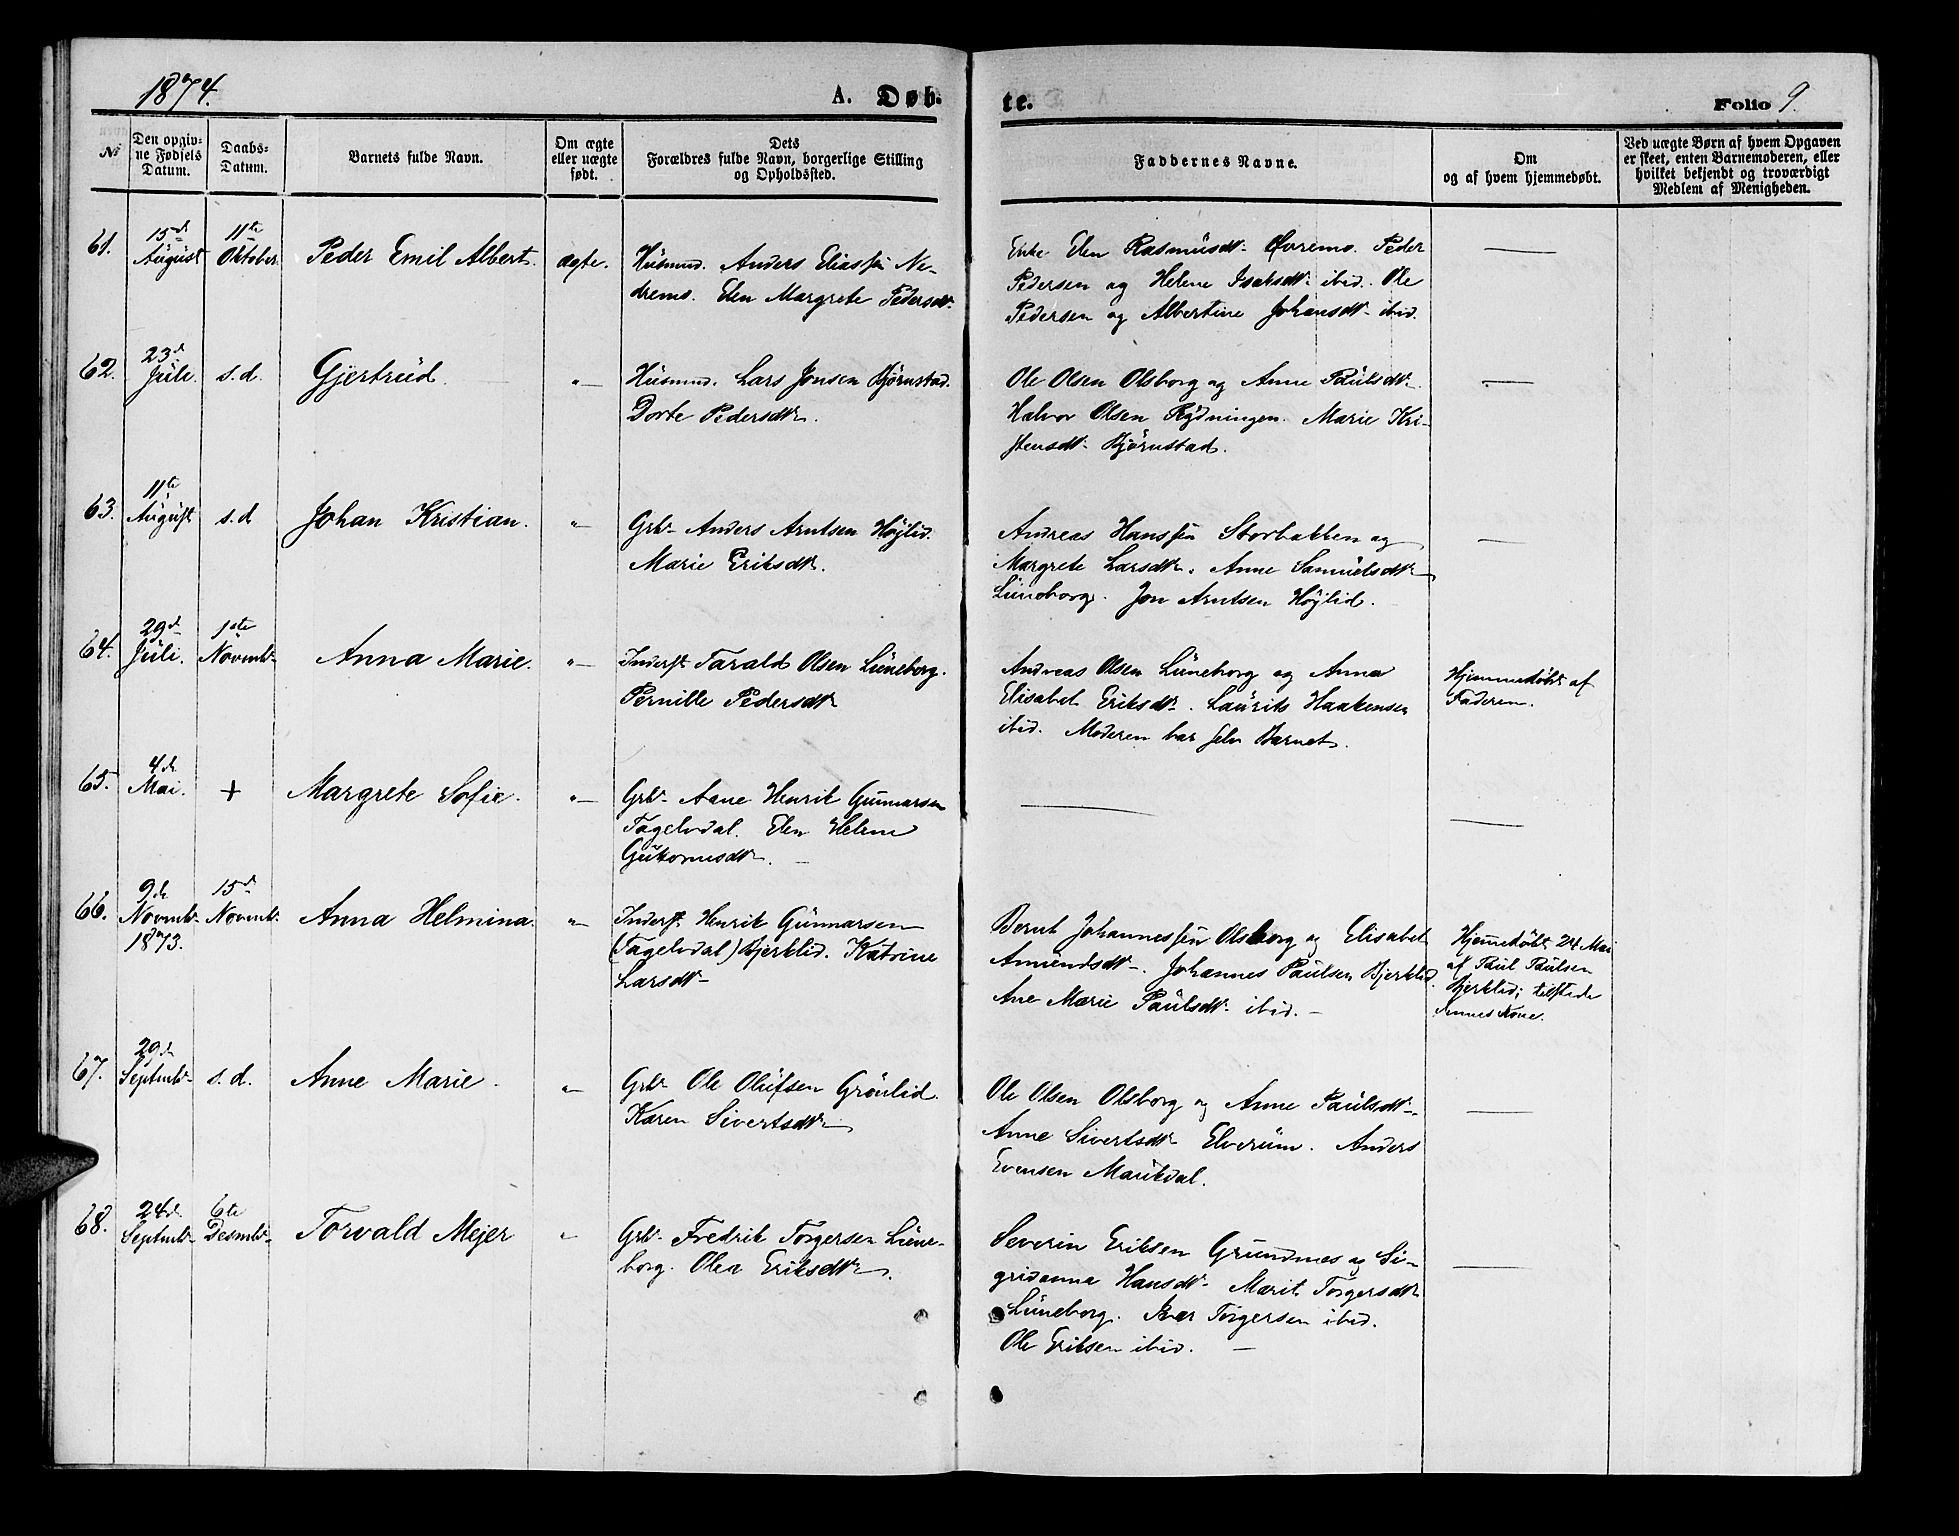 1874.
A. Døb-
te.
Folio 9.
No
Den opgiv-
ne Fødsels
Datum.
Daabs-
Datum.
Barnets fulde Navn.
Om ægte
eller uægte
født.
Dets
Forældres fulde Navn, borgerlige Stilling
og Opholdssted.
Faddernes Navne.
Om
og af hvem hjemmedøbt.
Ved uægte Børn af hvem Opgaven
er skeet, enten Barnemoderen, eller
hvilket bekjendt og troværdigt
Medlem af Menigheden.
61.
15de
August
11te
Oktober
Peder Emil Albert.
ægte.
Husmd. Anders Eliassen Ne-
dremo. Elen Margrete Pedersdtr.
Enke Elen Rasmusdtr. Øvremo. Peder
Pedersen og Helene Isaksdtr. ibid. Ole
Pedersen og Albertine Johansdtr. ibid.
62.
23de
Juli.
s.d.
Gjertrud.
"
Husmd. Lars Jonsen Bjørnstad.
Dorte Pedersdtr.
Ole Olsen Olsborg og Anne Paulsdtr.
Halvor Olsen Rydningen. Marie Kri-
stensdtr. Bjørnstad.
63.
11te
August
s.d
Johan Kristian.
"
Grbr. Anders Arntsen Højlid.
Marie Eriksdtr.
Andreas Hanssen Storbakken og
Margrete Larsdtr. Anne Samuelsdtr.
Luneborg. Jon Arntsen Højlid.
64.
29de
Juli.
1ste
Novembr.
Anna Marie.
"
Inderst Tarald Olsen Luneborg.
Pernille Pedersdtr.
Andreas Olsen Luneborg og Anna
Elisabet Eriksdtr. Laurits Haakensen
ibid. Moderen bar selv Barnet.
Hjemmedøbt af
Faderen.
65.
4de
Mai.
+
Margrete Sofie.
"
Grbr. Aane Henrik Gunnarsen
Tagelvdal. Elen Helene
Guttormsdtr.
66.
9de
Novembr.
1873.
15de
Novembr.
Anna Helmina.
"
Inderst Henrik Gunnarsen
(Tagelvdal) Bjerklid. Katrine
Larsdtr.
Bernt Johannessen Olsborg og Elisabet
Amundsdtr. Johannes Paulsen Bjerklid.
Ane Marie Paulsdtr. ibid.
Hjemmedøbt 24 Mai
af Paul Paulsen
Bjerklid; tilstede
Kone.
67.
29de
Septembr.
s.d.
Anne Marie.
"
Grbr. Ole Olufsen Grønlid.
Karen Sivertsdtr.
Ole Olsen Olsborg og Anne Paulsdtr.
Anne Sivertsdtr. Elverum. Anders
Evensen Maukdal.
68.
24de
Septembr.
6te
Desembr.
Torvald Mejer
"
Grbr. Fredrik Torgersen Lune-
borg. Olea Eriksdtr.
Severin Eriksen Grundnes og Si-
gridanna Hansdtr. Marit Torgersdtr.
Luneborg. Ivar Torgersen ibid.
Ole Eriksen ibid.